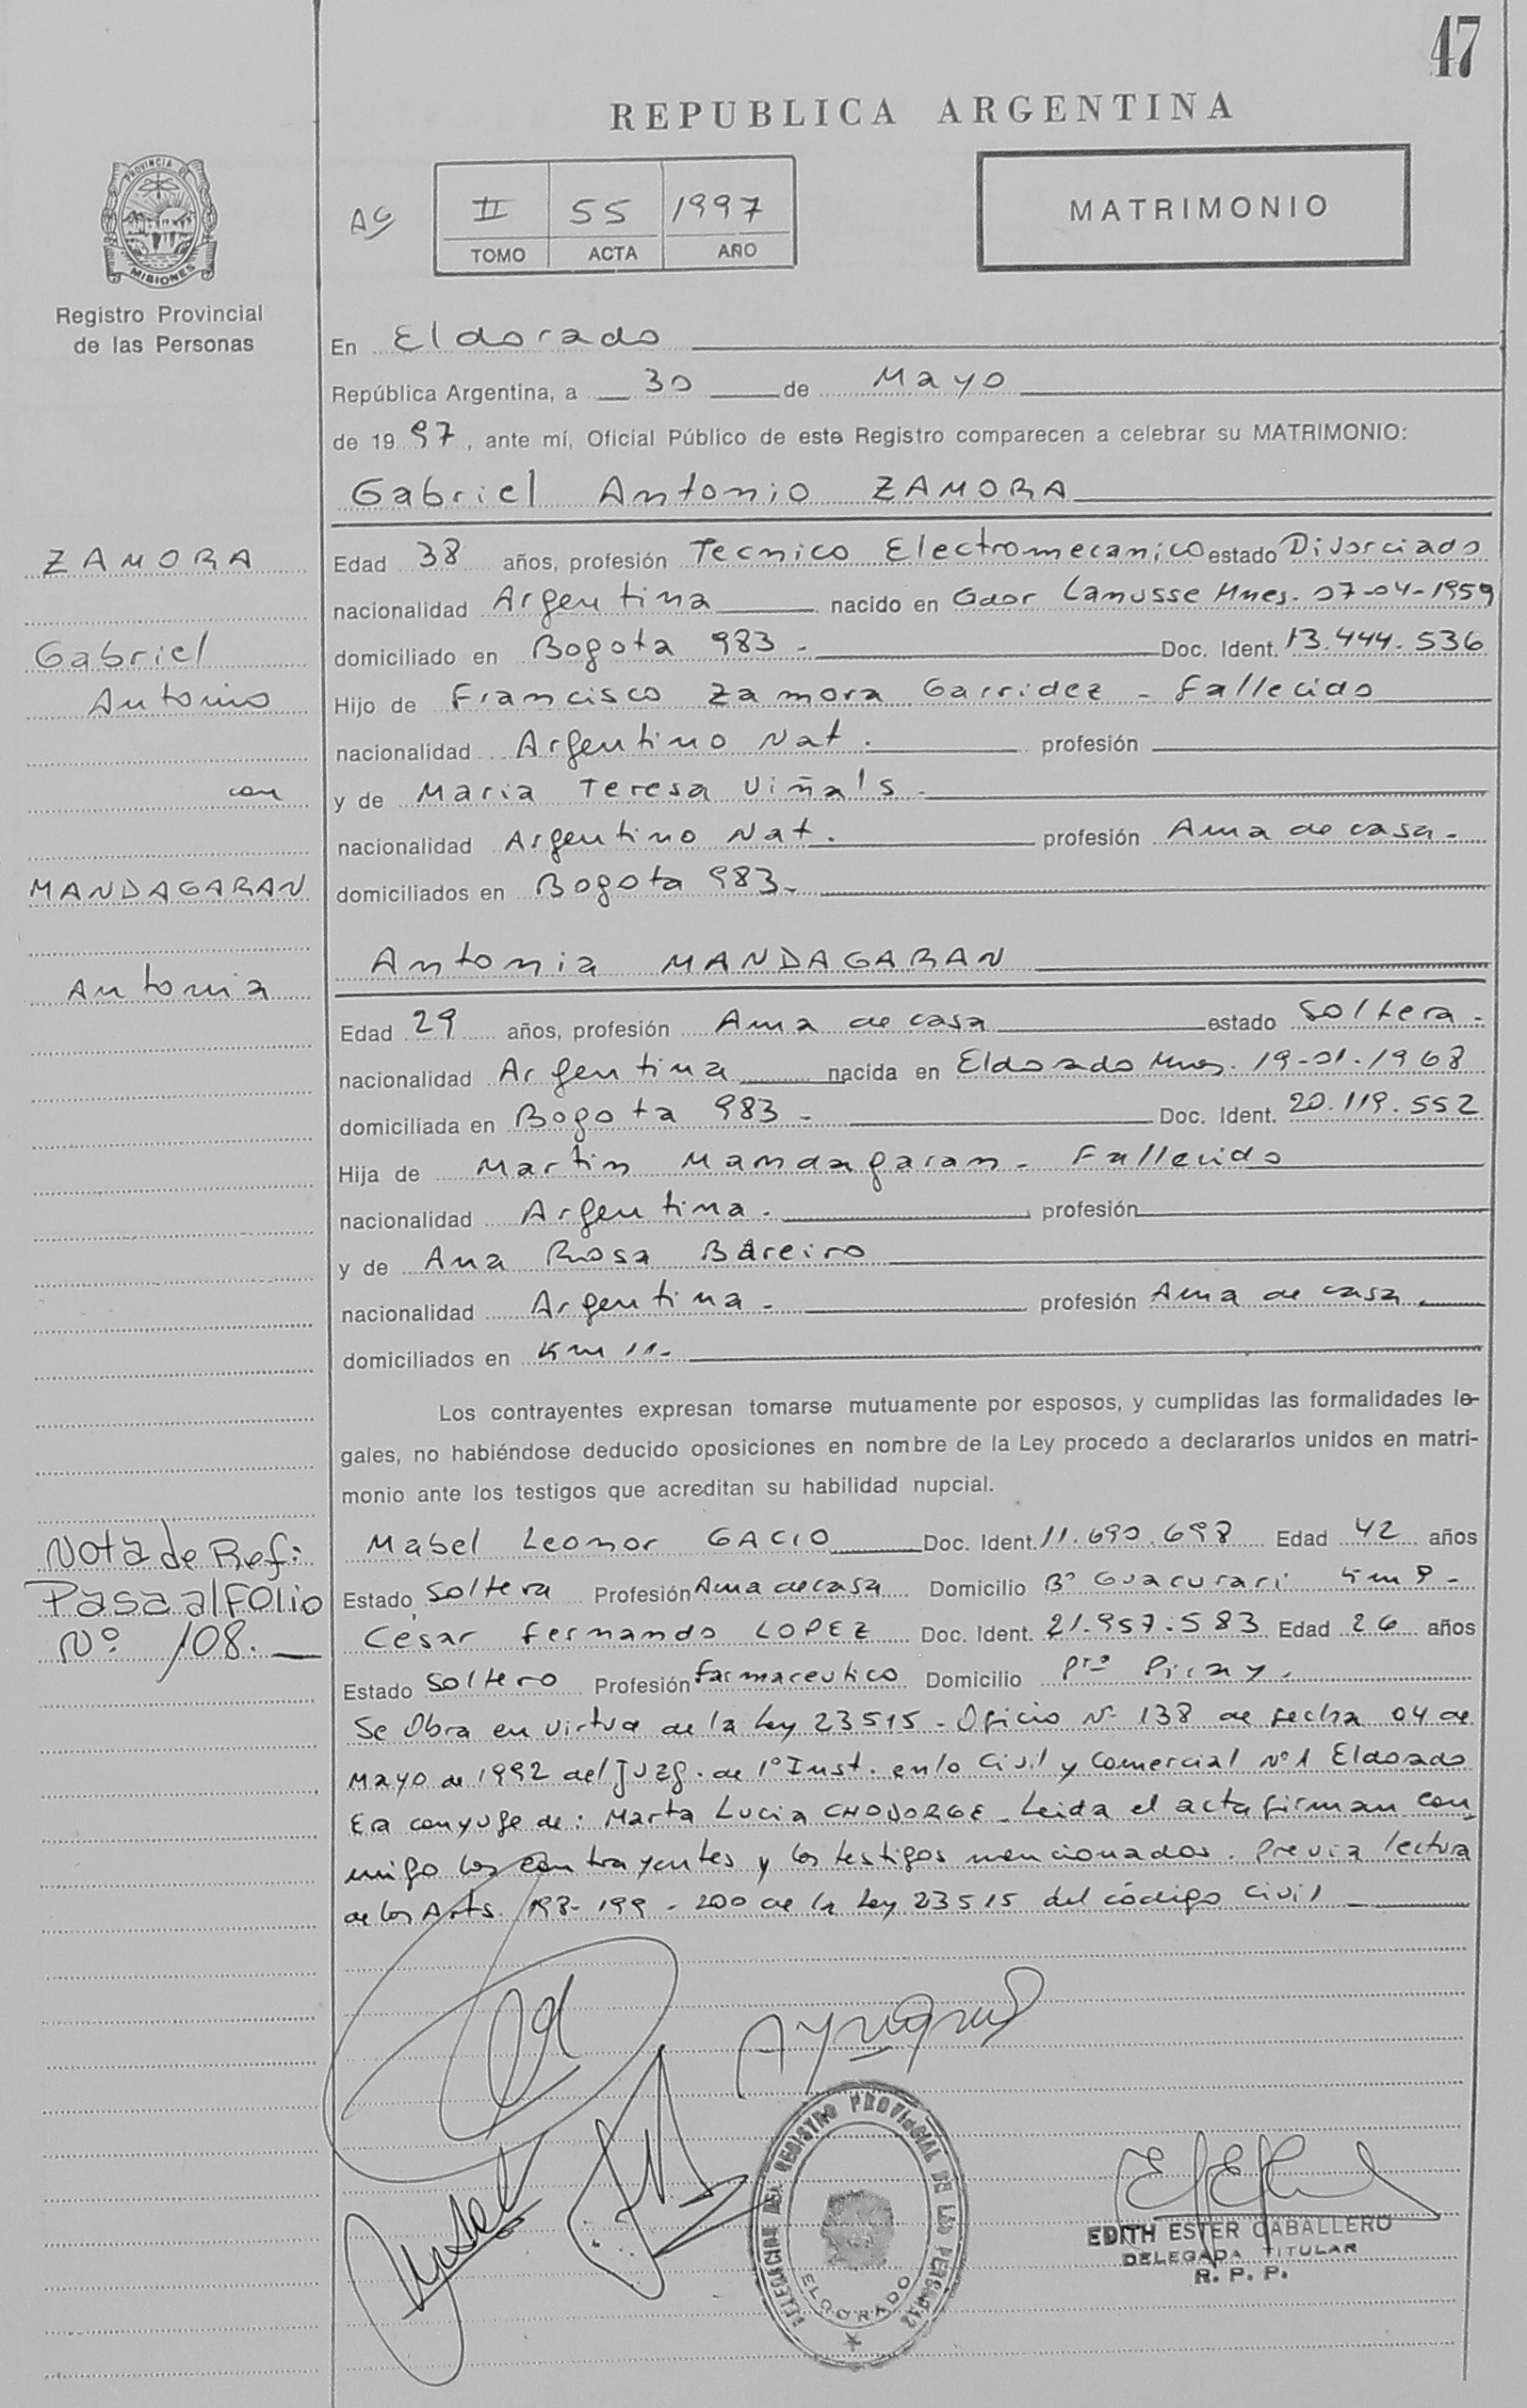 47
REPUBLICA ARGENTINA
PROVINCIA DE
MISIONES
Registro Provincial
de las Personas
II 55 1997
TOMO ACTA AÑO
MATRIMONIO
En Eldorado
República Argentina, a 30 de Mayo
de 1997, ante mí, Oficial Público de este Registro comparecen a celebrar su MATRIMONIO:
Gabriel Antonio ZAMORA
ZAMORA
Gabriel
Antonio
con
MANDAGARAN
Antonia
Edad 38 años, profesión Tecnico Electromecanico estado Divorciado
nacionalidad Argentina nacido en Gdor Lanusse Mnes. 07-04-1959
domiciliado en Bogota 983 - Doc. Ident. 13.444.536
Hijo de Francisco Zamora Garridez - Fallecido
nacionalidad Argentino Nat. profesión
y de Maria Teresa Viñals -
nacionalidad Argentino Nat. profesión Ama de casa -
domiciliados en Bogota 983-
Antonia MANDAGARAN
Edad 29 años, profesión Ama de casa estado Soltera -
nacionalidad Argentina nacida en Eldorado Mnes. 19-01-1968
domiciliada en Bogota 983 - Doc. Ident. 20.119.552
Hija de Martin Mandagaran - Fallecido
nacionalidad Argentina. profesión
y de Ana Rosa Bareiro
nacionalidad Argentina - profesión Ama de casa
domiciliados en Km 11-
Los contrayentes expresan tomarse mutuamente por esposos, y cumplidas las formalidades le-
gales, no habiéndose deducido oposiciones en nombre de la Ley procedo a declararlos unidos en matri-
monio ante los testigos que acreditan su habilidad nupcial.
Nota de Ref:
Pasa al Folio
Nº 108.
Mabel Leonor GACIO Doc. Ident. 11.690.698 Edad 42 años
Estado Soltera Profesión Ama de casa Domicilio Bº Guacurari Km 9 -
César Fernando LOPEZ Doc. Ident. 21.957.583 Edad 26 años
Estado Soltero Profesión Farmaceutico Domicilio Pto Piray.
Se Obra en virtud de la Ley 23515 - Oficio Nº 138 de fecha 04 de
Mayo de 1992 del Juzg. de 1º Inst. en lo Civil y Comercial Nº 1 Eldorado
Era conyuge de: Marta Lucia CHODORGE - Leida el acta firman con
migo los contrayentes y los testigos mencionados. Previa lectura
de los Arts. 198- 199 - 200 de la Ley 23515 del código Civil
REGISTRO PROVINCIAL DE LAS PERSONAS
ELDORADO
EDITH ESTER CABALLERO
DELEGADA TITULAR
R. P. P.